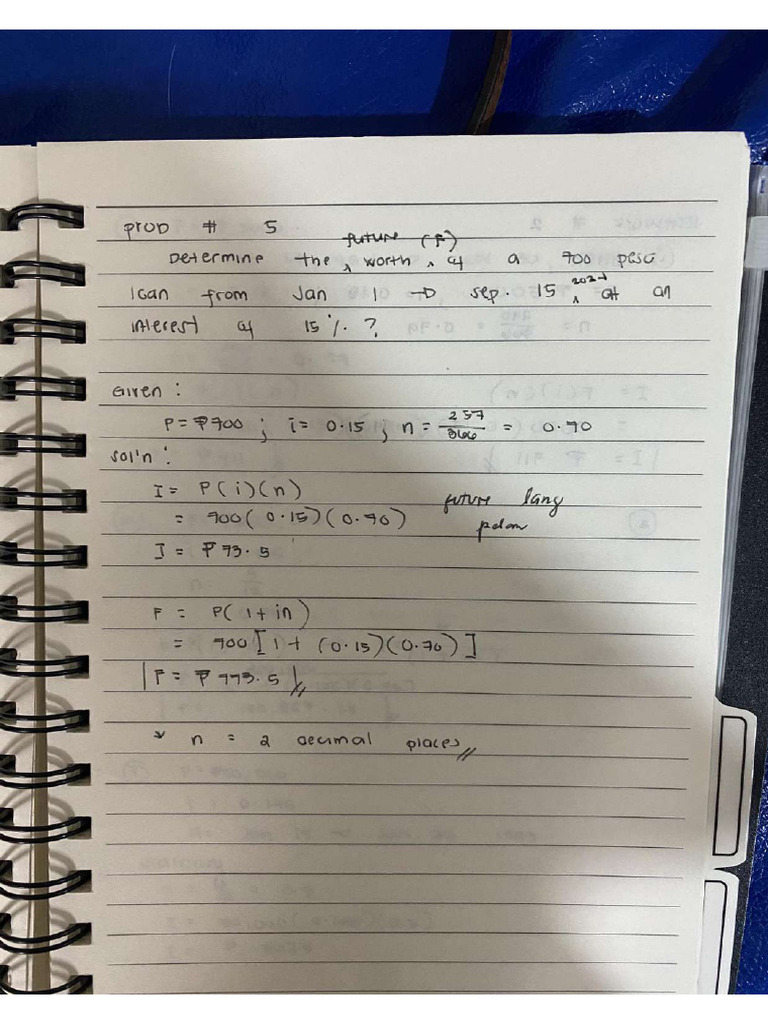 prob # 5
future (F)
Determine the ^ worth ^ of a 700 peso
loan from Jan 1 → sep. 15 ^ 2024 at an
interest of 15% ?
Given :
P = ₱700 ; i = 0.15 ; n = 257/366 = 0.70
sol'n :
I = P(i)(n)
= 700(0.15)(0.70)
future lang
I = ₱73.5
F = P(1+in)
= 700[1+(0.15)(0.70)]
F = ₱773.5
* n = 2 decimal places